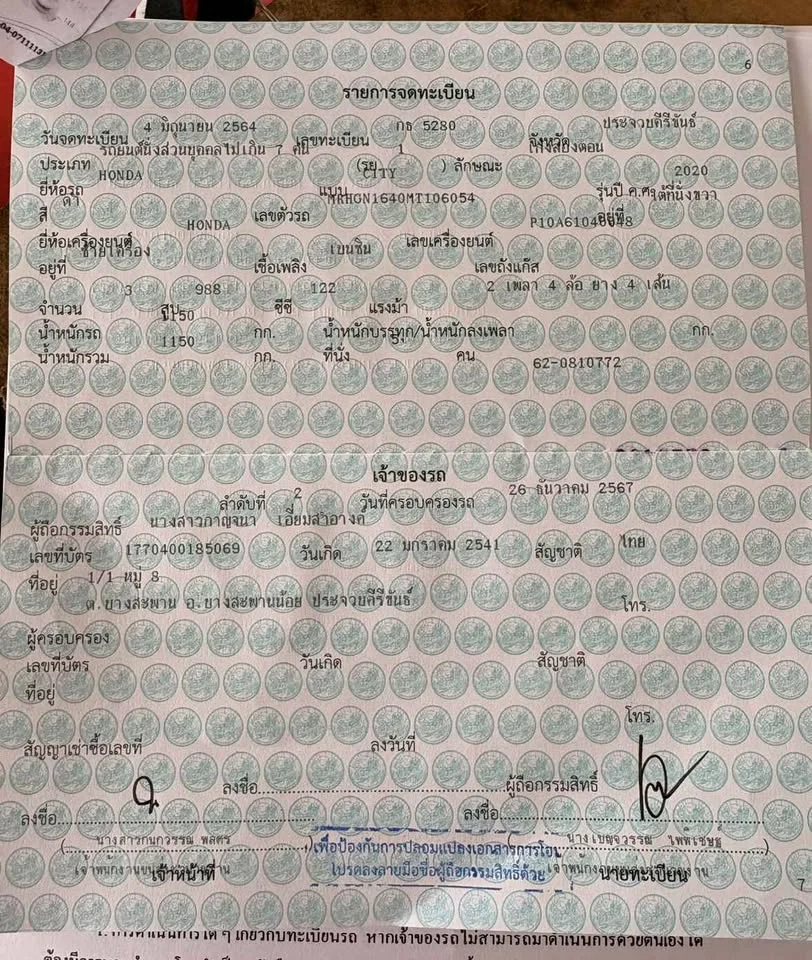 04-0711113
6
รายการจดทะเบียน
วันจดทะเบียน 4 มิถุนายน 2564 เลขทะเบียน กธ 5280 จังหวัด ประจวบคีรีขันธ์
ประเภท รถยนต์นั่งส่วนบุคคลไม่เกิน 7 คน (รย 1 ) ลักษณะ เก๋งสองตอน
ยี่ห้อรถ HONDA แบบ CITY รุ่นปี ค.ศ. 2020
สี ดำ เลขตัวรถ MRHGN1640MT106054 อยู่ที่ ใต้ที่นั่งขวา
ยี่ห้อเครื่องยนต์ HONDA เลขเครื่องยนต์ P10A61040048
อยู่ที่ ซ้ายเครื่อง เชื้อเพลิง เบนซิน เลขถังแก๊ส
จำนวน 3 สูบ 988 ซีซี 122 แรงม้า 2 เพลา 4 ล้อ ยาง 4 เส้น
น้ำหนักรถ 1150 กก. น้ำหนักบรรทุก/น้ำหนักลงเพลา กก.
น้ำหนักรวม 1150 กก. ที่นั่ง 5 คน
62-0810772
เจ้าของรถ
ลำดับที่ 2 วันที่ครอบครองรถ 26 ธันวาคม 2567
ผู้ถือกรรมสิทธิ์ นางสาวกาญจนา เอี่ยมสำอางค์
เลขที่บัตร 1770400185069 วันเกิด 22 มกราคม 2541 สัญชาติ ไทย
ที่อยู่ 1/1 หมู่ 8
ต.บางสะพาน อ.บางสะพานน้อย ประจวบคีรีขันธ์ โทร.
ผู้ครอบครอง
เลขที่บัตร วันเกิด สัญชาติ
ที่อยู่
โทร.
สัญญาเช่าซื้อเลขที่ ลงวันที่
ลงชื่อ ผู้ถือกรรมสิทธิ์
ลงชื่อ ลงชื่อ
(นางสาวกนกวรรณ พลศร) (นางเบญจวรรณ ไพพิเชษฐ์)
เพื่อป้องกันการปลอมแปลงเอกสารการโอน
โปรดลงลายมือชื่อผู้ถือกรรมสิทธิ์ด้วย
เจ้าหน้าที่ นายทะเบียน
7
1. การดำเนินการใด ๆ เกี่ยวกับทะเบียนรถ หากเจ้าของรถไม่สามารถมาดำเนินการด้วยตนเองได้